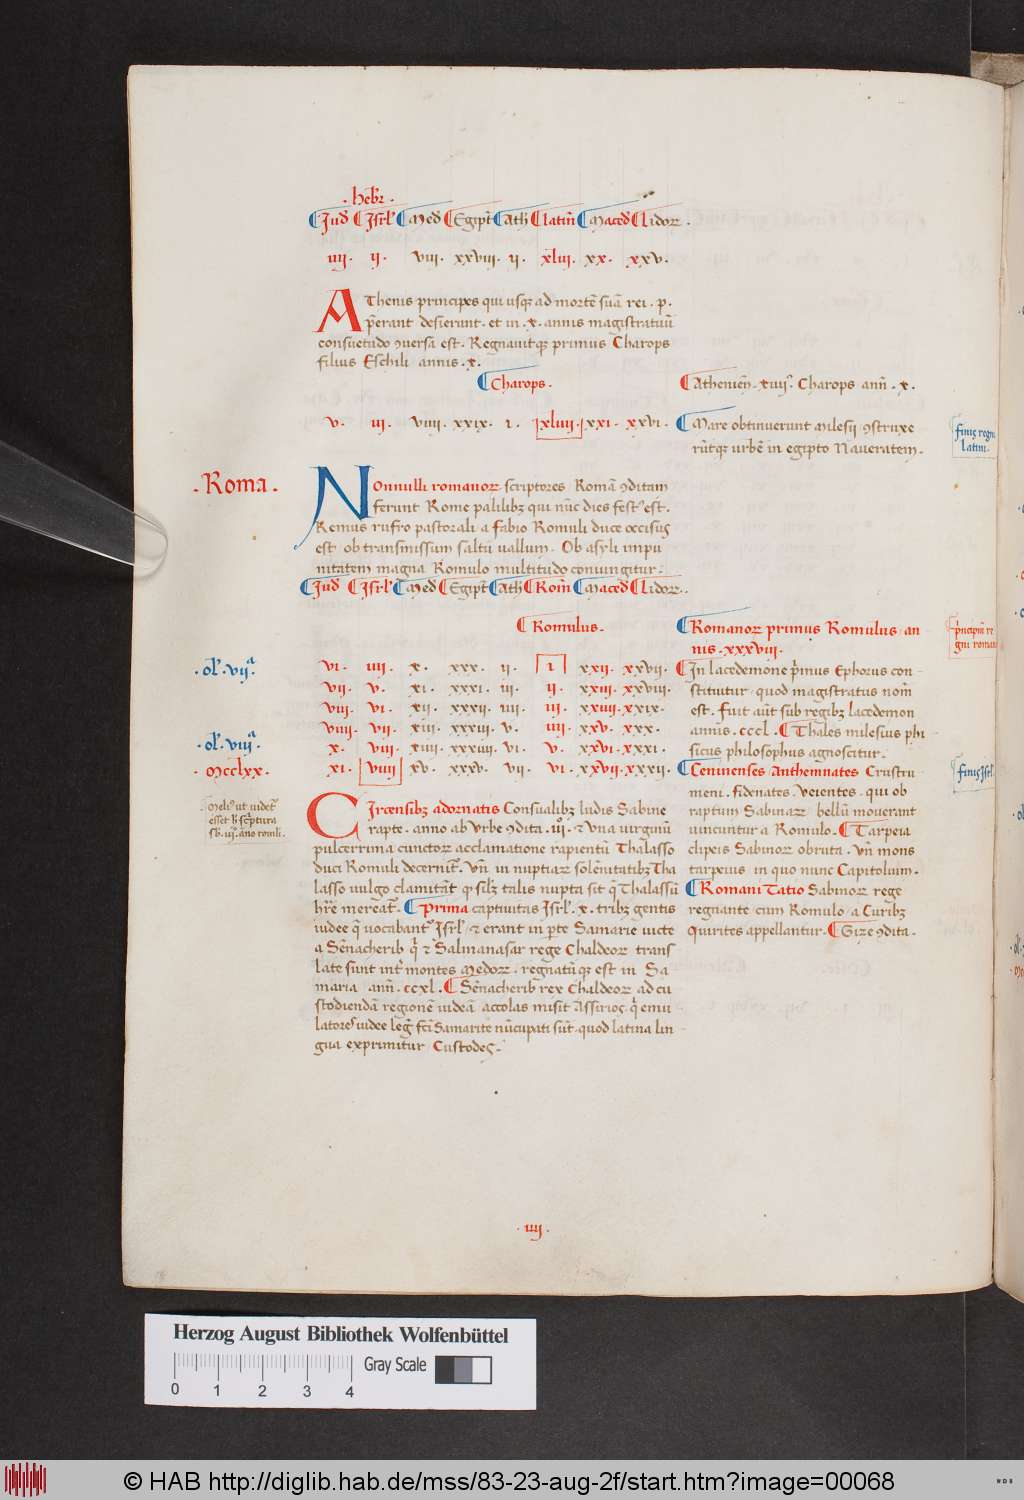 . hebr .
Jud Isrl' Med Egipt Ath latin Maced lidor .
iiij . ij . viij . xxviij . ij . xliij . xx . xxv .
AThenis principes qui usq ad mortē suā rei . p .
p̄erant desierunt . et in . x . annis magistratuū
consuetudo ꝯuersa est . Regnauitq primus Charops
filius Eschili annis . x .
Charops .
Athenien . xiiij . Charops ann . x .
v . iij . viiij . xxix . i . xliiij . xxi . xxvi .
Mare obtinuerunt milesii ꝯstruxe
rūtq urbē in egipto Naucratem .
finis regni
latini .
. Roma .
NOnnulli romanoꝝ scriptores Romā ꝯditam
ferunt Rome palilibꝫ qui nūc dies fest' est .
Remus rustro pastorali a fabio Romuli duce occisus
est ob transmissum saltu uallum . Ob asyli impu
nitatem magna Romulo multitudo coniungitur .
Jud Isrl' Med Egipt Ath Rom Maced lidoꝝ .
Romulus .
Romanoꝝ primus Romulus an
nis . xxxviij .
. ol' . vijª .
vi . iiij . x . xxx . ij . i . xxij . xxvij .
vij . v . xi . xxxi . iij . ij . xxiij . xxviij .
viij . vi . xij . xxxij . iiij . iij . xxiiij . xxix .
viiij . vij . xiij . xxxiij . v . iiij . xxv . xxx .
. ol' . viijª .
x . viij . xiiij . xxxiiij . vi . v . xxvi . xxxi .
. Mcclxx .
xi . viiij . xv . xxxv . vij . vi . xxvij . xxxij .
In lacedemone p̄imus Ephorus con
stituitur quod magistratus nom̄
est . Fuit aūt sub regibꝫ lacedemon
annis . cccl . Thales milesius phi
sicus philosophus agnoscitur .
Ceninenses Anthemnates Crustu
meni . fidenates . Veientes . qui ob
raptum Sabinaꝝ bellū mouerant
uincuntur a Romulo . Tarpeia
clipeis Sabinoꝝ obruta . Vn̄ mons
tarpeius in quo nunc Capitolium .
Romani Tatio Sabinoꝝ rege
regnante cum Romulo a Curibꝫ
Quirites appellantur . Gize ꝯdita .
finis Isrl'
CIrcensibꝫ adornatis Consualibꝫ ludis Sabine
rapte . anno ab Vrbe ꝯdita . iij . & Vna uirginū
pulcerrima cunctoꝝ acclamatione rapientū Thalasso
duci Romuli decernit . Vn̄ in nuptiaꝝ solēnitatibꝫ Tha
lasso uulgo clamitāt talis nupta sit Thalassū
hr̄e mereat . Prima captiuitas Isrl' . x . tribꝫ gentis
iudee vocabant Isrl' & erant in parte Samarie uicte
a Sēnacherib & Salmanasar rege Chaldeoꝝ trans
late sunt int' montes Medoꝝ . regnatūq est in Sa
maria ann . ccxl . Sēnacherib rex Chaldeoꝝ ad cu
stodiendā regionē iudeā accolas misit Assirios . emu
latores iudee leg' Samarite nūcupati sūt . quod latina lin
gua exprimitur Custodes .
. iiij .
Herzog August Bibliothek Wolfenbüttel
Gray Scale
0 1 2 3 4
© HAB http://diglib.hab.de/mss/83-23-aug-2f/start.htm?image=00068